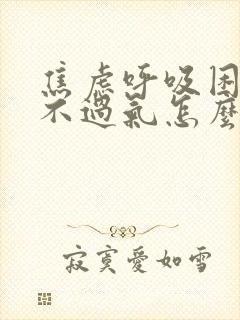 焦虑呼吸困
不過氣怎麼
寂寞愛如雪